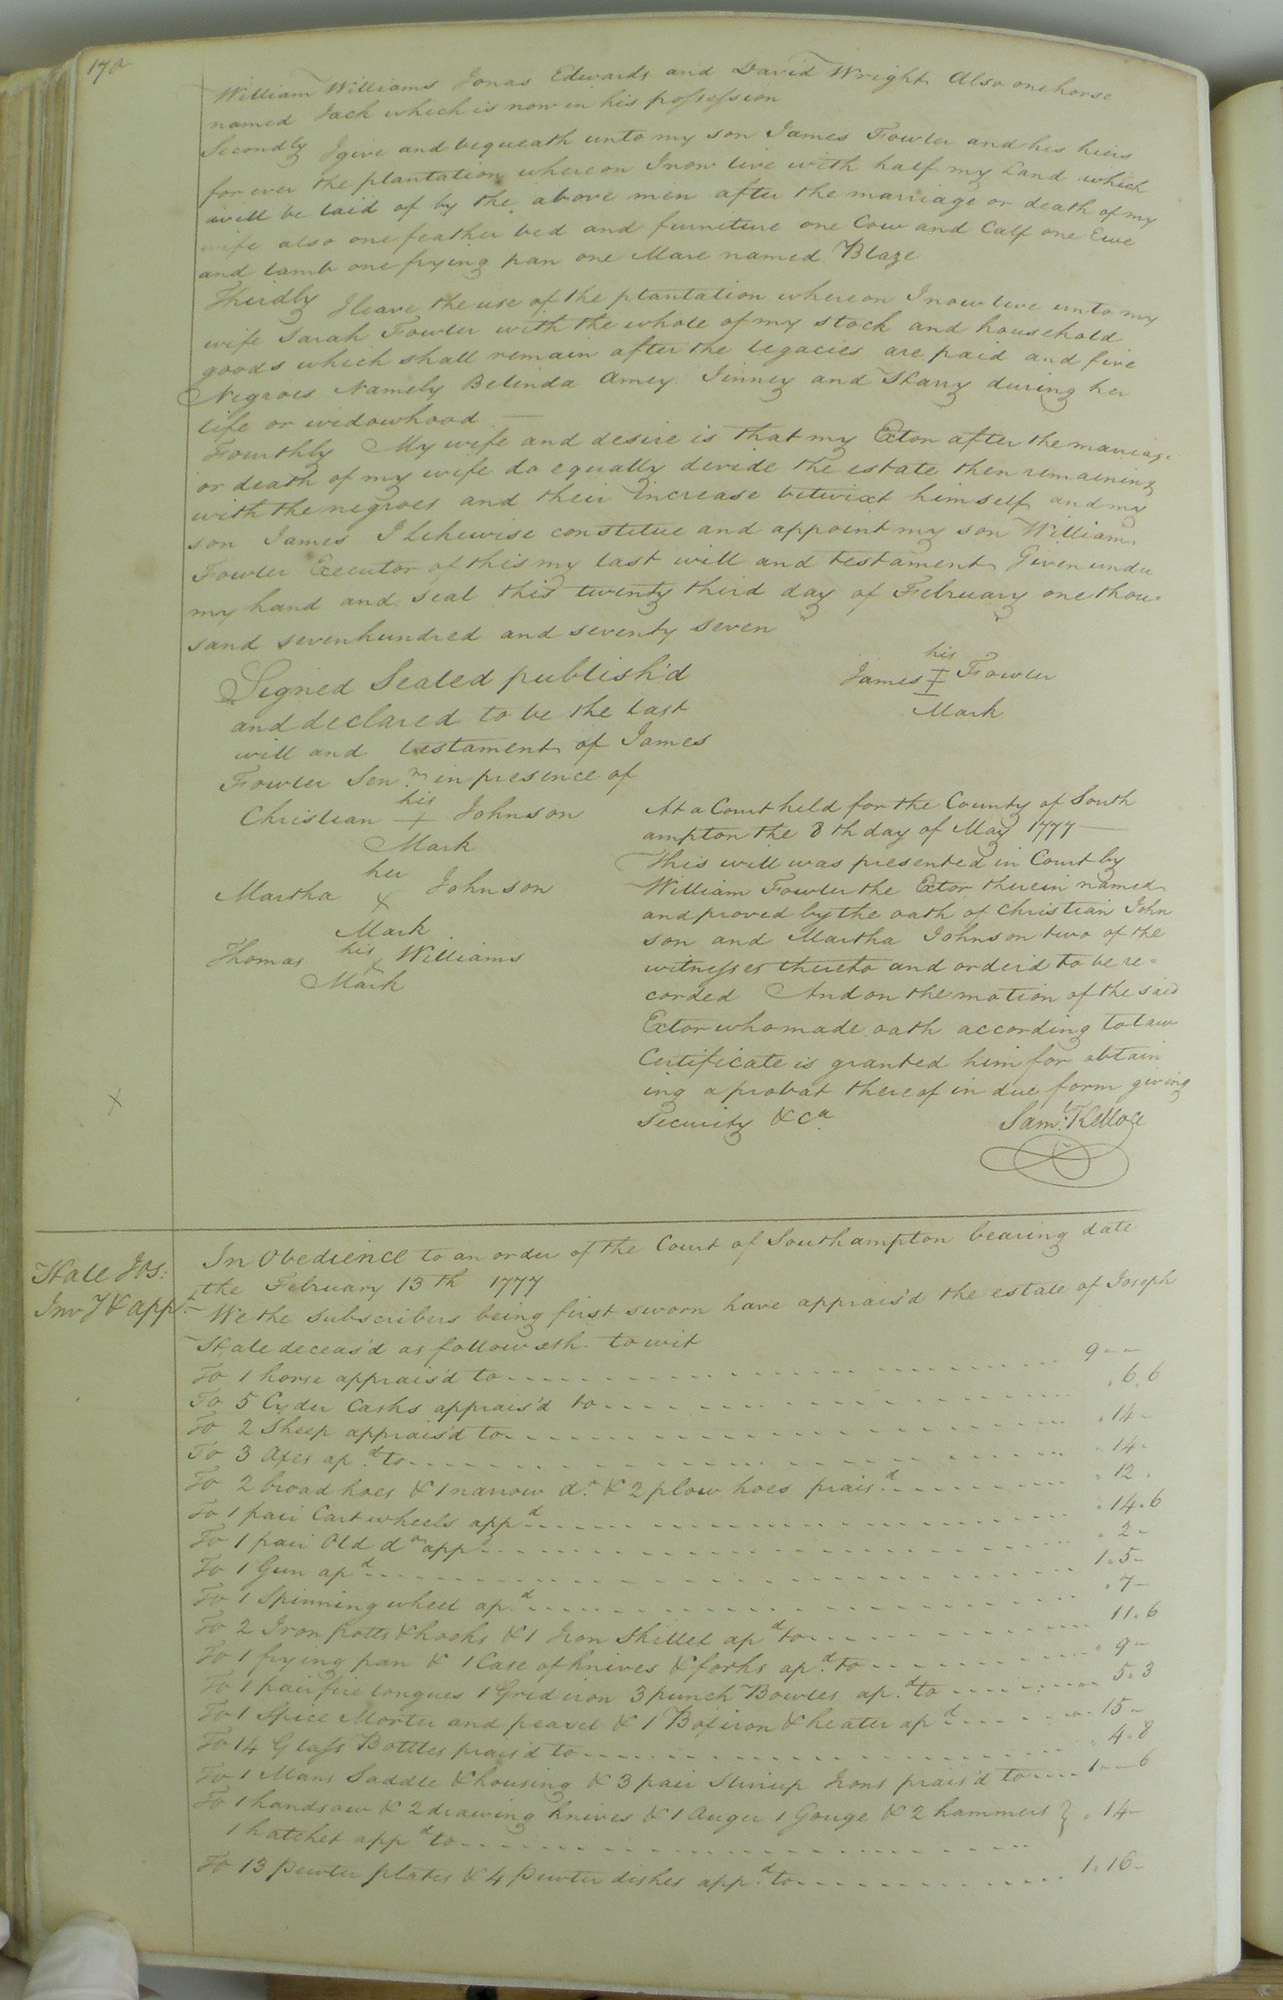 170
William Williams Jonas Edwards and David Wright Also one horse
named Jack which is now in his possession
Secondly I give and bequeath unto my son James Fowler and his heirs
for ever the plantation whereon I now live with half my Land which
will be laid of by the above men after the marriage or death of my
wife also one feather bed and furniture one Cow and Calf one Ewe
and lamb one frying pan one Mare named Blaze
Thirdly I leave the use of the plantation whereon I now live unto my
wife Sarah Fowler with the whole of my stock and household
goods which shall remain after the legacies are paid and five
Negroes Namely Belinda Amey Jinney and Harry during her
life or widowhood —
Fourthly My wife and desire is that my Extor after the marriage
or death of my wife do equally divide the estate then remaining
with the negroes and their increase betwixt himself and my
son James I Likewise constitue and appoint my son William
Fowler Executor of this my last will and testament Given unde
my hand and seal this twenty third day of February one thou-
sand seven hundred and seventy seven
his
James I Fowler
Mark
Signed Sealed publish'd
and declared to be the last
will and testament of James
Fowler Senr. in presence of
his
Christian + Johnson
Mark
her
Martha x Johnson
Mark
Thomas his x Williams
Mark
At a Court held for the County of South
ampton the 8th day of May 1777 —
This will was presented in Court by
William Fowler the Extor therein named
and proved by the oath of Christian John
son and Martha Johnson two of the
witnesses thereto and orderd to be re=
corded And on the motion of the said
Extor who made oath according to law
Certificate is granted him for obtain
ing a probat thereof in due form giving
Security & ca.
Saml. Kelloce
x
Hale Jos:
Invy & appt
In Obedience to an order of the Court of Southampton bearing date
the February 13th 1777
We the Subscribers being first sworn have apprais'd the estate of Joseph
Hale deceas'd as followeth to wit
To 1 horse apprais'd to 9 - -
To 5 Cyder Casks apprais'd to . 6. 6
To 2 Sheep apprais'd to . 14 -
To 3 Axes apd. to . 14 -
To 2 broad hoes & 1 narrow do. & 2 plow hoes praisd. . 12 .
To 1 pair Cart wheels appd . 14. 6
To 1 pair Old do app . 2 -
To 1 Gun apd 1. 5 -
To 1 Spinning wheel apd. . 7 -
To 2 Iron potts & hooks & 1 Iron Skillet apd to 11. 6
To 1 frying pan & 1 Case of knives & forks apd. to . 9 -
To 1 pair fire tongues 1 Gridiron 3 punch Bowles apd. to 5. 3
To 1 Spice Morter and peasel & 1 Box iron & heater apd . 15 -
To 14 Glass Bottles prais'd to . 4. 8
To 1 Mans Saddle & housing & 3 pair Stirrup Irons prais'd to 1 - - 6
To 1 handsaw & 2 drawing knives & 1 Auger 1 Gouge & 2 hammers } . 14 -
1 hatchet appd to
To 13 Pewter plates & 4 Pewter dishes appd. to 1. 16 -